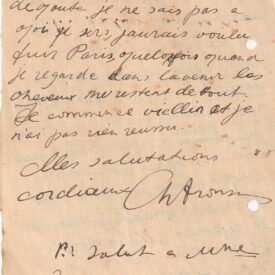 degoute je ne sais pas a
qoi je sers, jaurais voulu
fuir Paris, quelqfois quand
je regarde dans lavenir les
cheveux me restent debout
Je commence viellir et je
n'ai pas rien reussi.
Mes salutations
cordiaux ChAronson
P.S. Salut a Mme